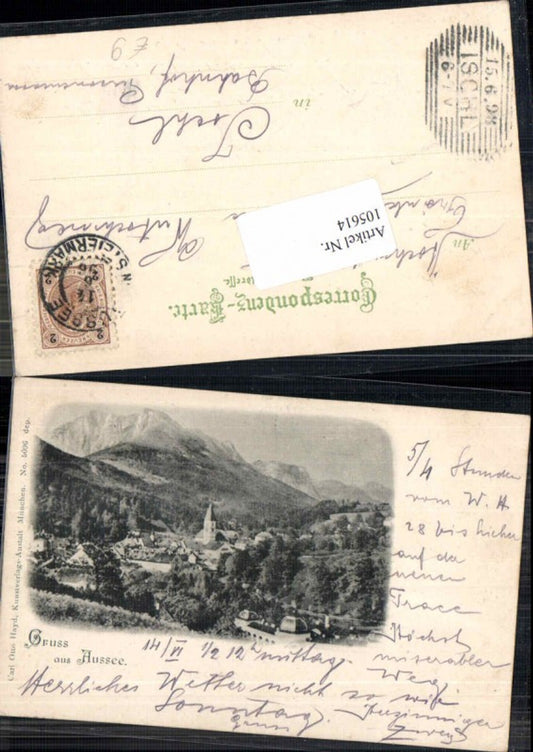 £9
15.6.98
ISCHL
6-7 V
Bahnhof,
in
Ischl
An
Artikel Nr.
105614
Correspondenz-Karte.
AUSSEE IN STEIERMARK
2 2
Carl Otto Hayd, Kunstverlags-Anstalt München. No. 5096 dep.
Gruss
aus Aussee.
5/4 Stunden
vom W. H
28 bis hieher
auf der
neuen
Trace
Höchst
miserabler
Weg.
14/VI 1/2 12h mittag.
Herrliches Wetter nicht so wie
Sonntag.